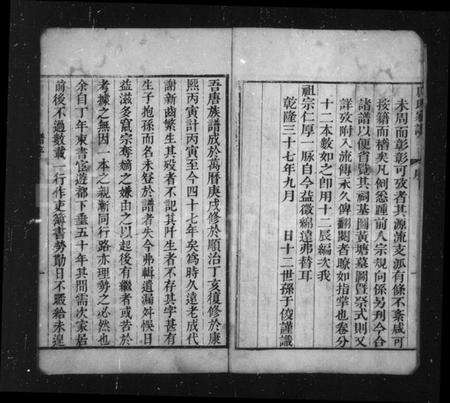 未周而彰彰可攷者其源流支派有條不紊咸可
按籍而稽矣凡例悉踵前人宗規向係另刊今合
諸譜以便省覽其祠基圖黃塘墓圖暨祭式則又
詳攷附入流傳永久俾翻閱者瞭如指掌也卷分
十二本數如之即用十二辰編次我
祖宗仁厚一脉自今益徵綿遠弗替耳
乾隆三十七年九月 日十二世孫于俊謹識
吾唐族譜成於萬曆庚戌修於順治丁亥復修於康
熙丙寅計丙寅至今四十七年矣為時久遠老成代
謝新齒繁生其歿者不記其阡生者不存其字甚有
生子抱孫而名未登於譜者失今弗輯遺漏舛悞日
益滋多竄宗奪嫡之嫌由之以起後有繼者或苦於
考據之無因一本之親漸同行路亦理勢之必然也
余自丁年東書宦遊都下垂五十年其間需次家居
前後不過數載一行作吏簿書勞勩日不暇給未遑